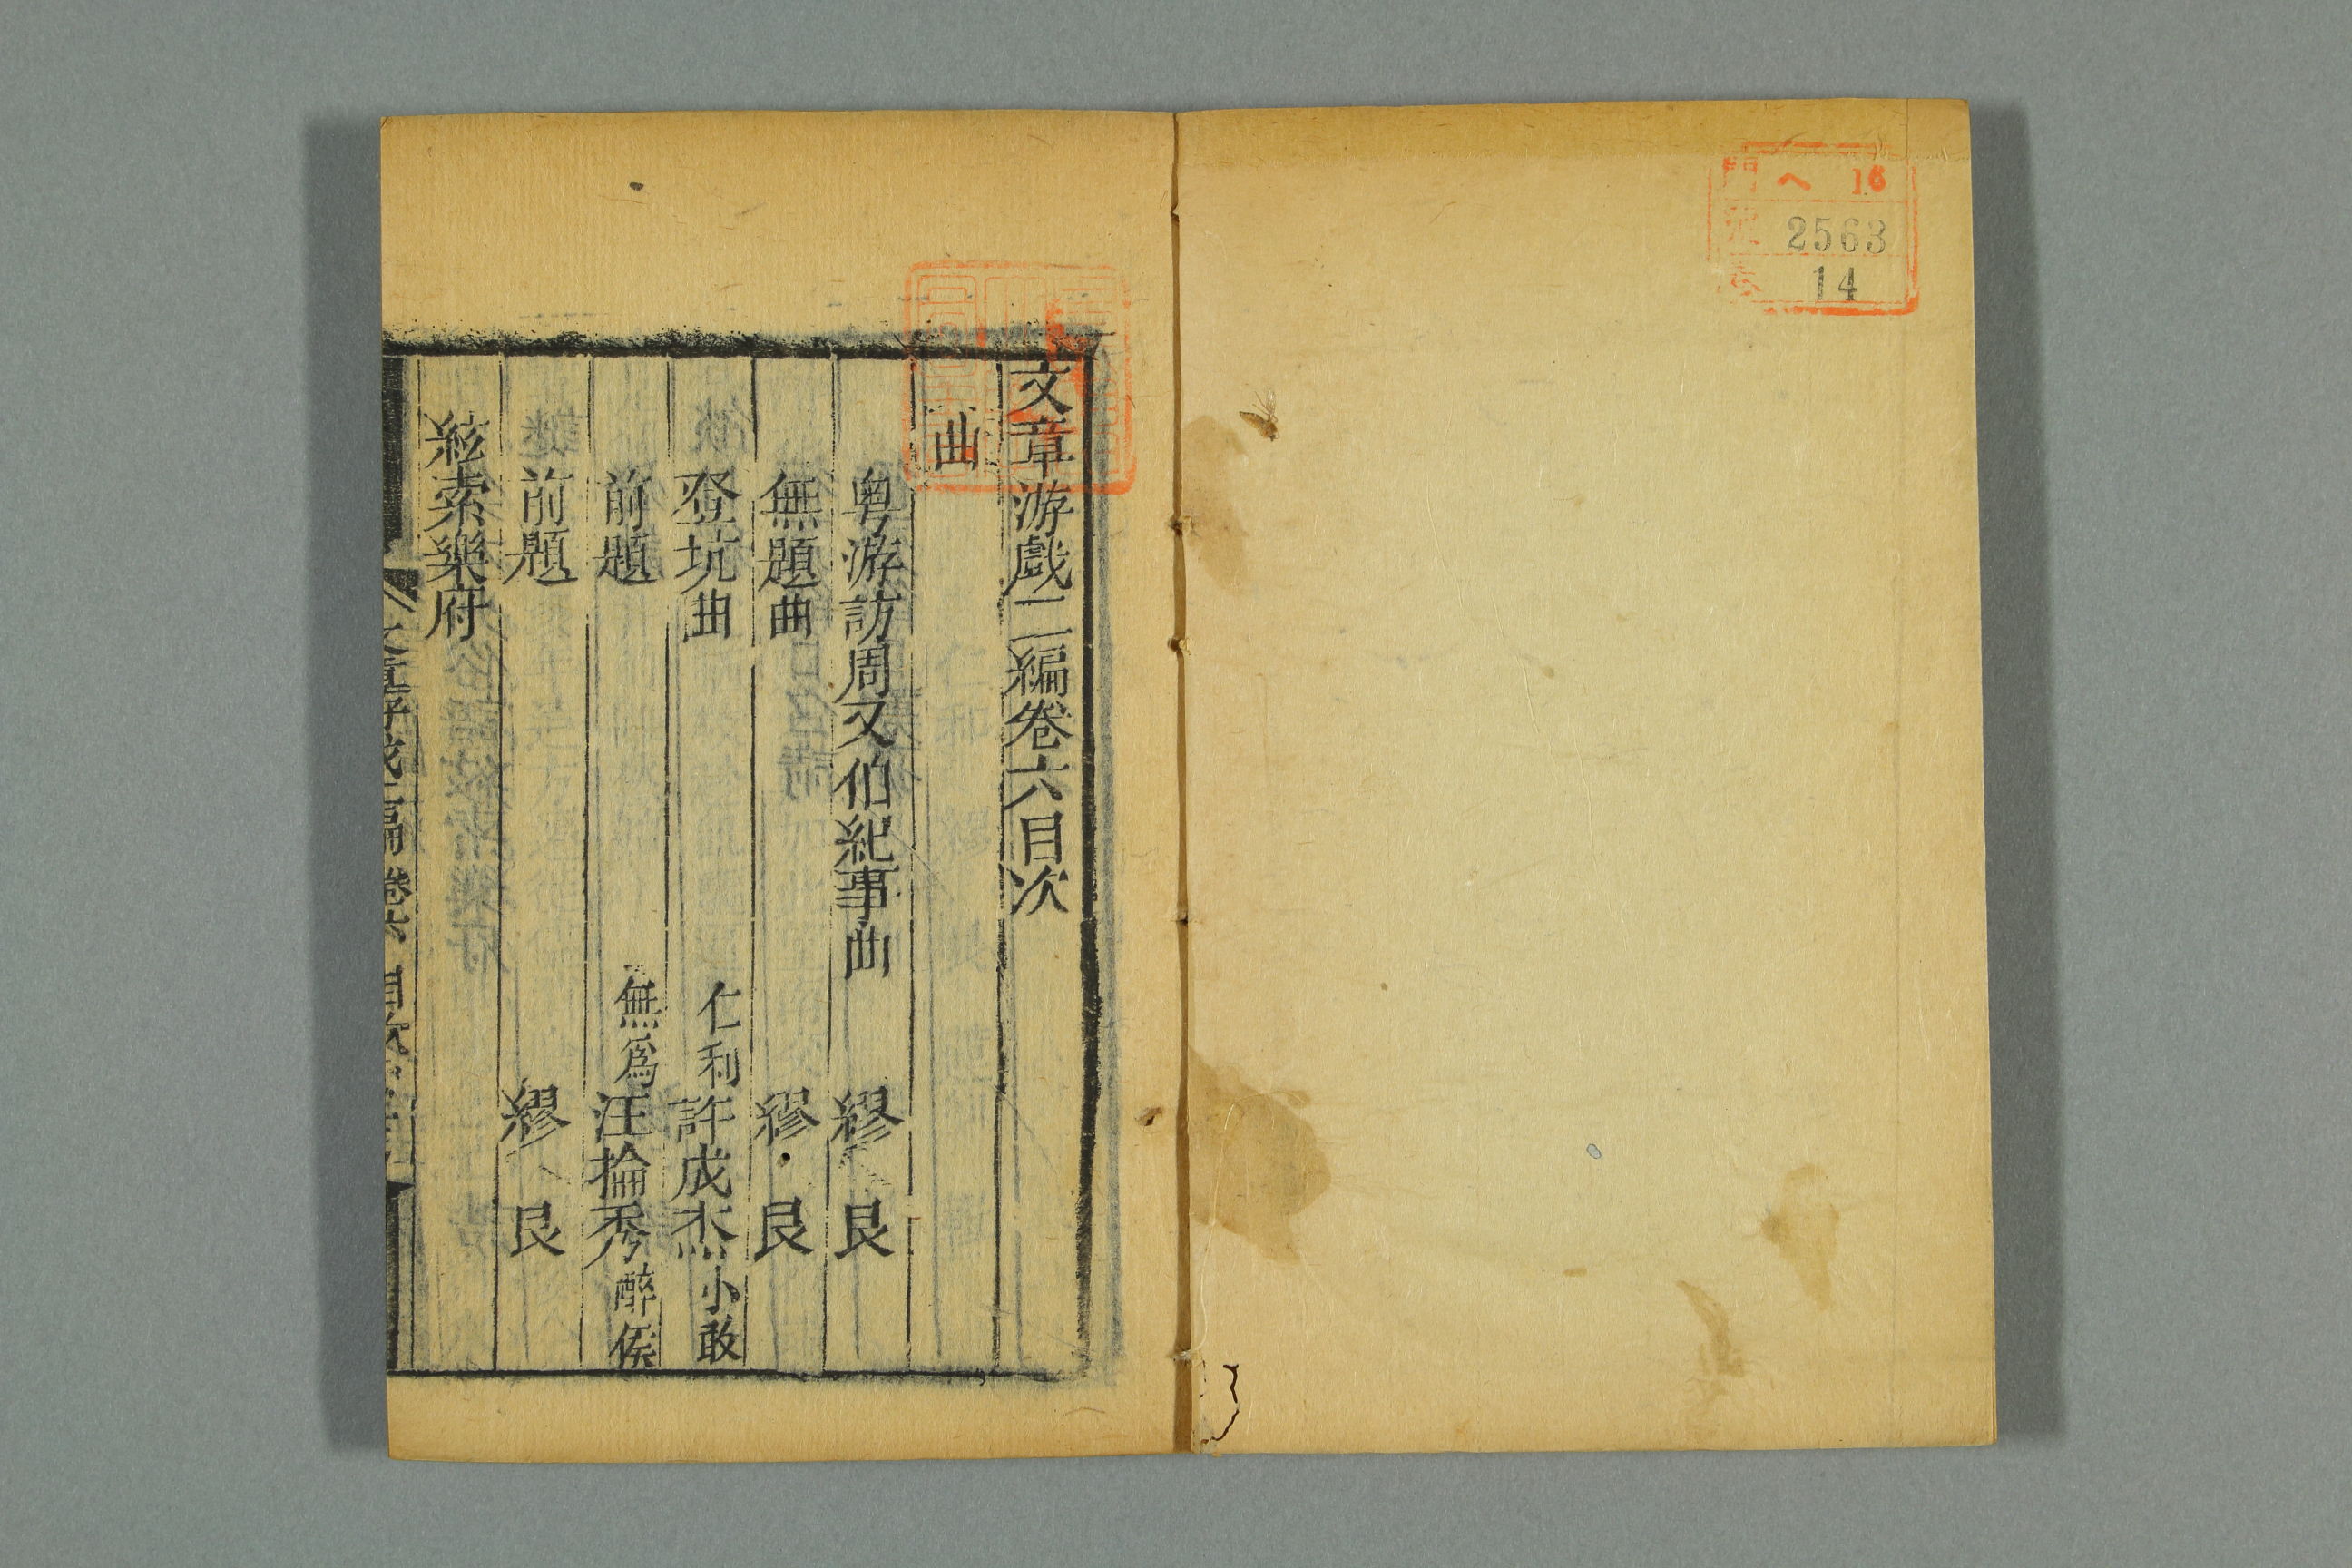 門 ヘ 16
號 2563
卷 14
文章游戲二編卷六目次
曲
粤游訪周又伯紀事曲 繆艮
無題曲 繆艮
登坑曲 仁和許成杰小敢
前題 無爲汪掄秀醉侯
前題 繆艮
絃索樂府
文章游戲二編 卷六 目次